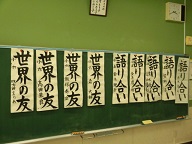 世界の友
世界の友
世界の友
世界の友
語り合い
語り合い
語り合い
語り合い
語り合い